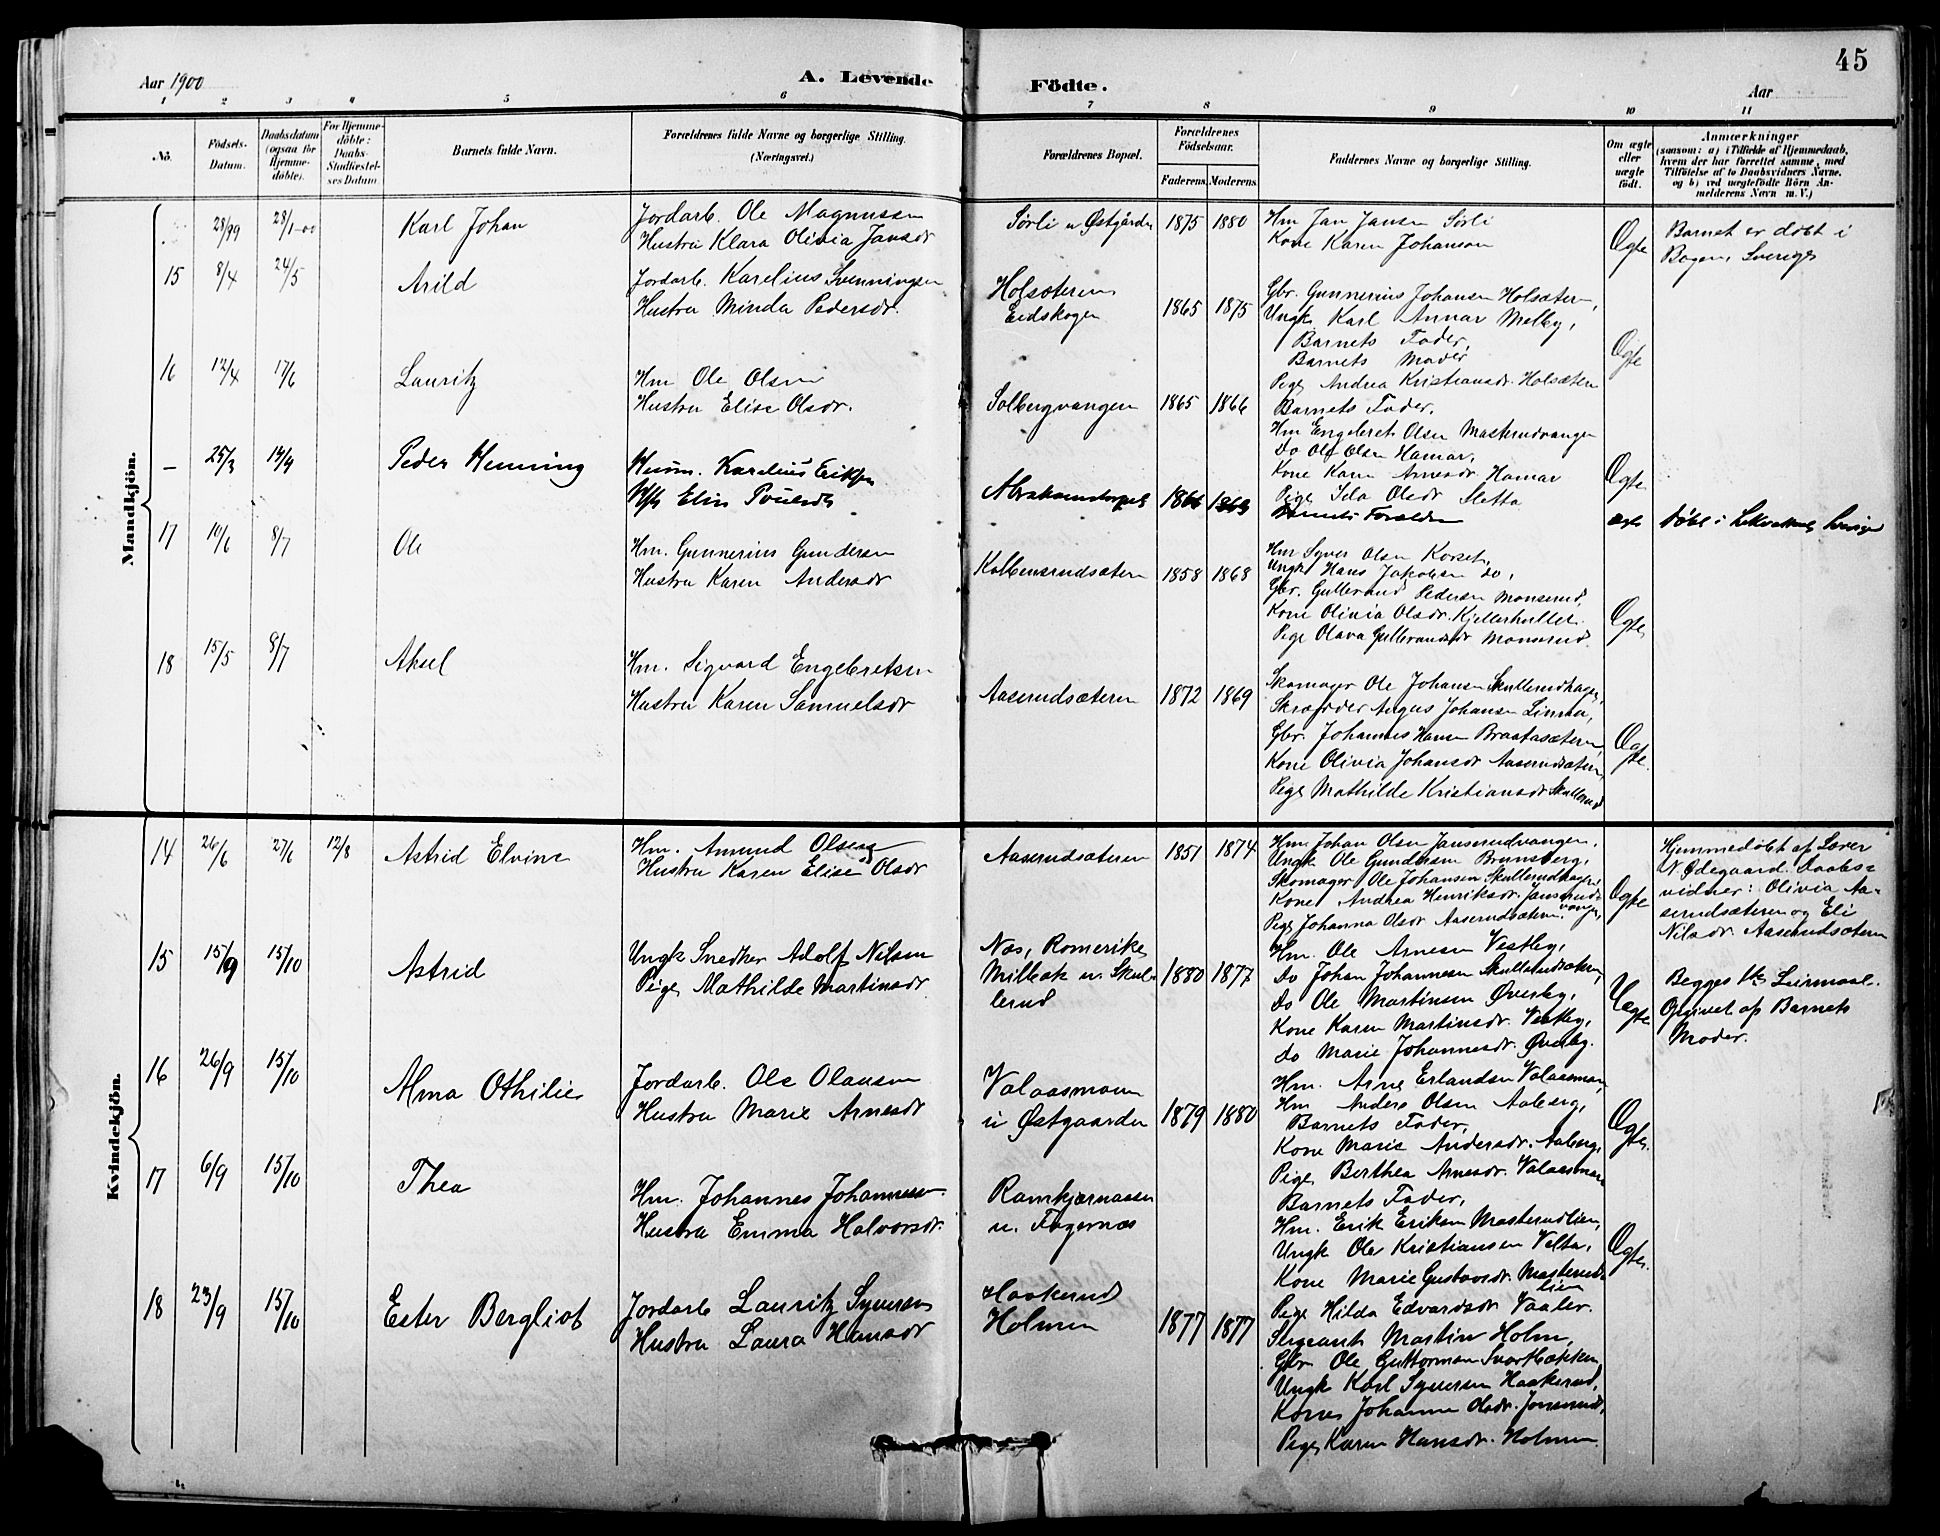 45
Aar 1900
A. Levende
Födte.
Aar
1 2 3 4 5 6 7 8 9 10 11
No.
Födsels-
Datum.
Daabsdatum
(ogsaa for
Hjemme-
döbte).
For Hjemme-
döbte:
Daabs-
Stadfæstel-
ses Datum
Barnets fulde Navn.
Forældrenes fulde Navne og borgerlige Stilling.
(Næringsvei.)
Forældrenes Bopæl.
Forældrenes
Födselsaar.
Faderens. Moderens.
Faddernes Navne og borgerlige Stilling.
Om ægte
eller
uægte
födt.
Anmærkninger
(saasom: a) i Tilfælde af Hjemmedaab,
hvem der har forrettet samme, med
Tilföielse af to Daabsvidners Navne.
og b) ved uægtefödte Börn An-
melderens Navn m. V.)
Mandkjön.
28/99 28/1-00 Karl Johan
Jordarb. Ole Magnussen
Hustru Klara Olivia Jansdr
Sörli u Østgårder 1875 1880
Hm Jan Jansen Sörli
Kone Karen Johanson
Ægte
Barnet er døbt i
Bogen, Sverige
15 8/4 24/5 Arild
Jordarb. Karelius Svenningsen
Hustru Minda Pedersdr.
Holsæteren
Eidskogen 1865 1875
Gbr. Gunnerius Johansen Holsæteren,
Ungk. Karl Annar Melby,
Barnets Fader,
Barnets Moder
Pige Andrea Kristiansdr. Holsæteren
Ægte
16 12/4 17/6 Lauritz
Hm Ole Olsen
Hustru Elise Olsdr.
Solbergvangen 1865 1866
Barnets Fader,
Hm Engebret Olsen Masterudvangen
do Olf Olsen Hamar,
Kone Karen Arnesdr Hamar
Pige Ida Olsdr Sletta
Ægte
– 25/3 14/4 Peder Henning
Husm. Karelius Eriksen
Hst Elin Poulsdr
Abrahamstorpet
Barnets Forældre
ægte
døbt i
17 10/6 8/7 Ole
Hm. Gunnerius Gundersen
Hustru Karen Andersdr
Kolbensrudsæteren 1858 1868
Hm Syver Olsen Korset,
Ungk Hans Jakobsen do,
Gbr. Gulbrand Pedersen Monserud,
Kone Olivia Olsdr. Kjellerhullet.
Pige Olava Gulbrandsdr Monserud.
Ægte
18 15/5 8/7 Aksel
Hm. Sigvard Engebretsen
Hustru Karen Samuelsdr
Aaserudsæteren 1872 1869
Skomager Ole Johansen Skullerudhagen,
Skræder August Johansen Linna,
Gbr. Johannes Hansen Braatasæteren,
Kone Olivia Johansdr Aaserudsæteren,
Pige Mathilde Kristiansdr Skullerud
Ægte.
Kvindekjön.
14 26/6 27/6 12/8 Astrid Elvine
Hm. Amund Olsen
Hustru Karen Elise Olsdr
Aaserudsæteren 1851 1874
Hm Johan Olsen Janserudvangen,
Ungk Ole Gundersen Brunsberg,
Skomager Ole Johansen Skullerudhagen,
Kone Andrea Henriksdr. Janserud-
vangen,
Pige Johanna Olsdr Aaserudsæteren
Ægte
Hjemmedøbt af Lærer
N. Ødegaard. Daabs-
vidner: Olivia Aa-
serudsæteren og Eli
Nilsdr. Aaserudsæteren
15 15/9 15/10 Astrid
Ungk Snedker Adolf Nilsen
Pige Mathilde Martinsdr
Næs, Romerike
Milbak u. Skul-
lerud 1880 1877
Hm. Ole Arnesen Vestby,
Do Johan Johannesen Skullerudsæteren,
Do Ole Martinsen Øverby,
Kone Karen Martinsdr. Vestby,
Do Marie Johannesdr. Øverby.
Uægte
Begges 1ste Leiermaal.
Opgivet af Barnets
Moder.
16 26/9 15/10 Alma Othilie
Jordarb. Ole Olausen
Hustru Marie Arnesdr
Valaasmoen
u Østgaarder 1879 1880
Hm. Arne Erlandsen Valaasmoen,
Hm Anders Olsen Aaberg,
Barnets Fader,
Kone Marie Andersdr. Aaberg,
Pige Berthea Arnesdr. Valaasmoen
Ægte.
17 6/9 15/10 Thea
Hm. Johannes Johannesen
Hustru Emma Halvorsdr.
Ramkjærnaasen
u. Fagernæs
Barnets Fader,
Hm. Erik Eriksen Masterudlien,
Ungk Ole Kristiansen Velta,
Kone Marie Gustavsdr. Masterud-
lien
Pige Hilda Edvardsdr Vaaler.
Ægte.
18 23/9 15/10 Ester Bergliot
Jordarb Lauritz Syversen
Hustru Laura Hansdr
Haakerud
Holmen 1877 1877
Sergeant Martin Holm,
Gbr Ole Guttormsen Svartbækken,
Ungk Karl Syversen Haakerud,
Kone Johanne Olsdr. Jonsrud,
Pige Karen Hansdr. Holmen.